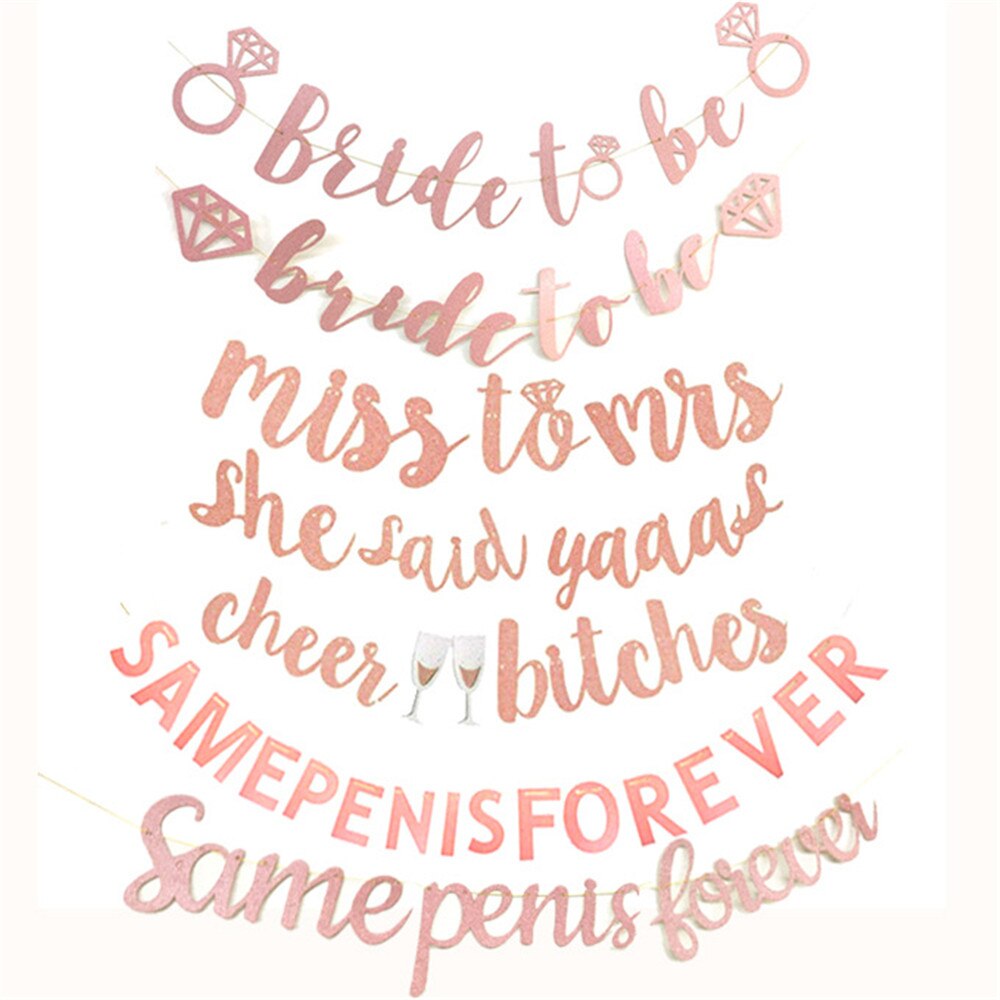 Bride to be
bride to be
miss to mrs
she said yaaas
cheer bitches
SAMEPENISFOREVER
Same penis forever